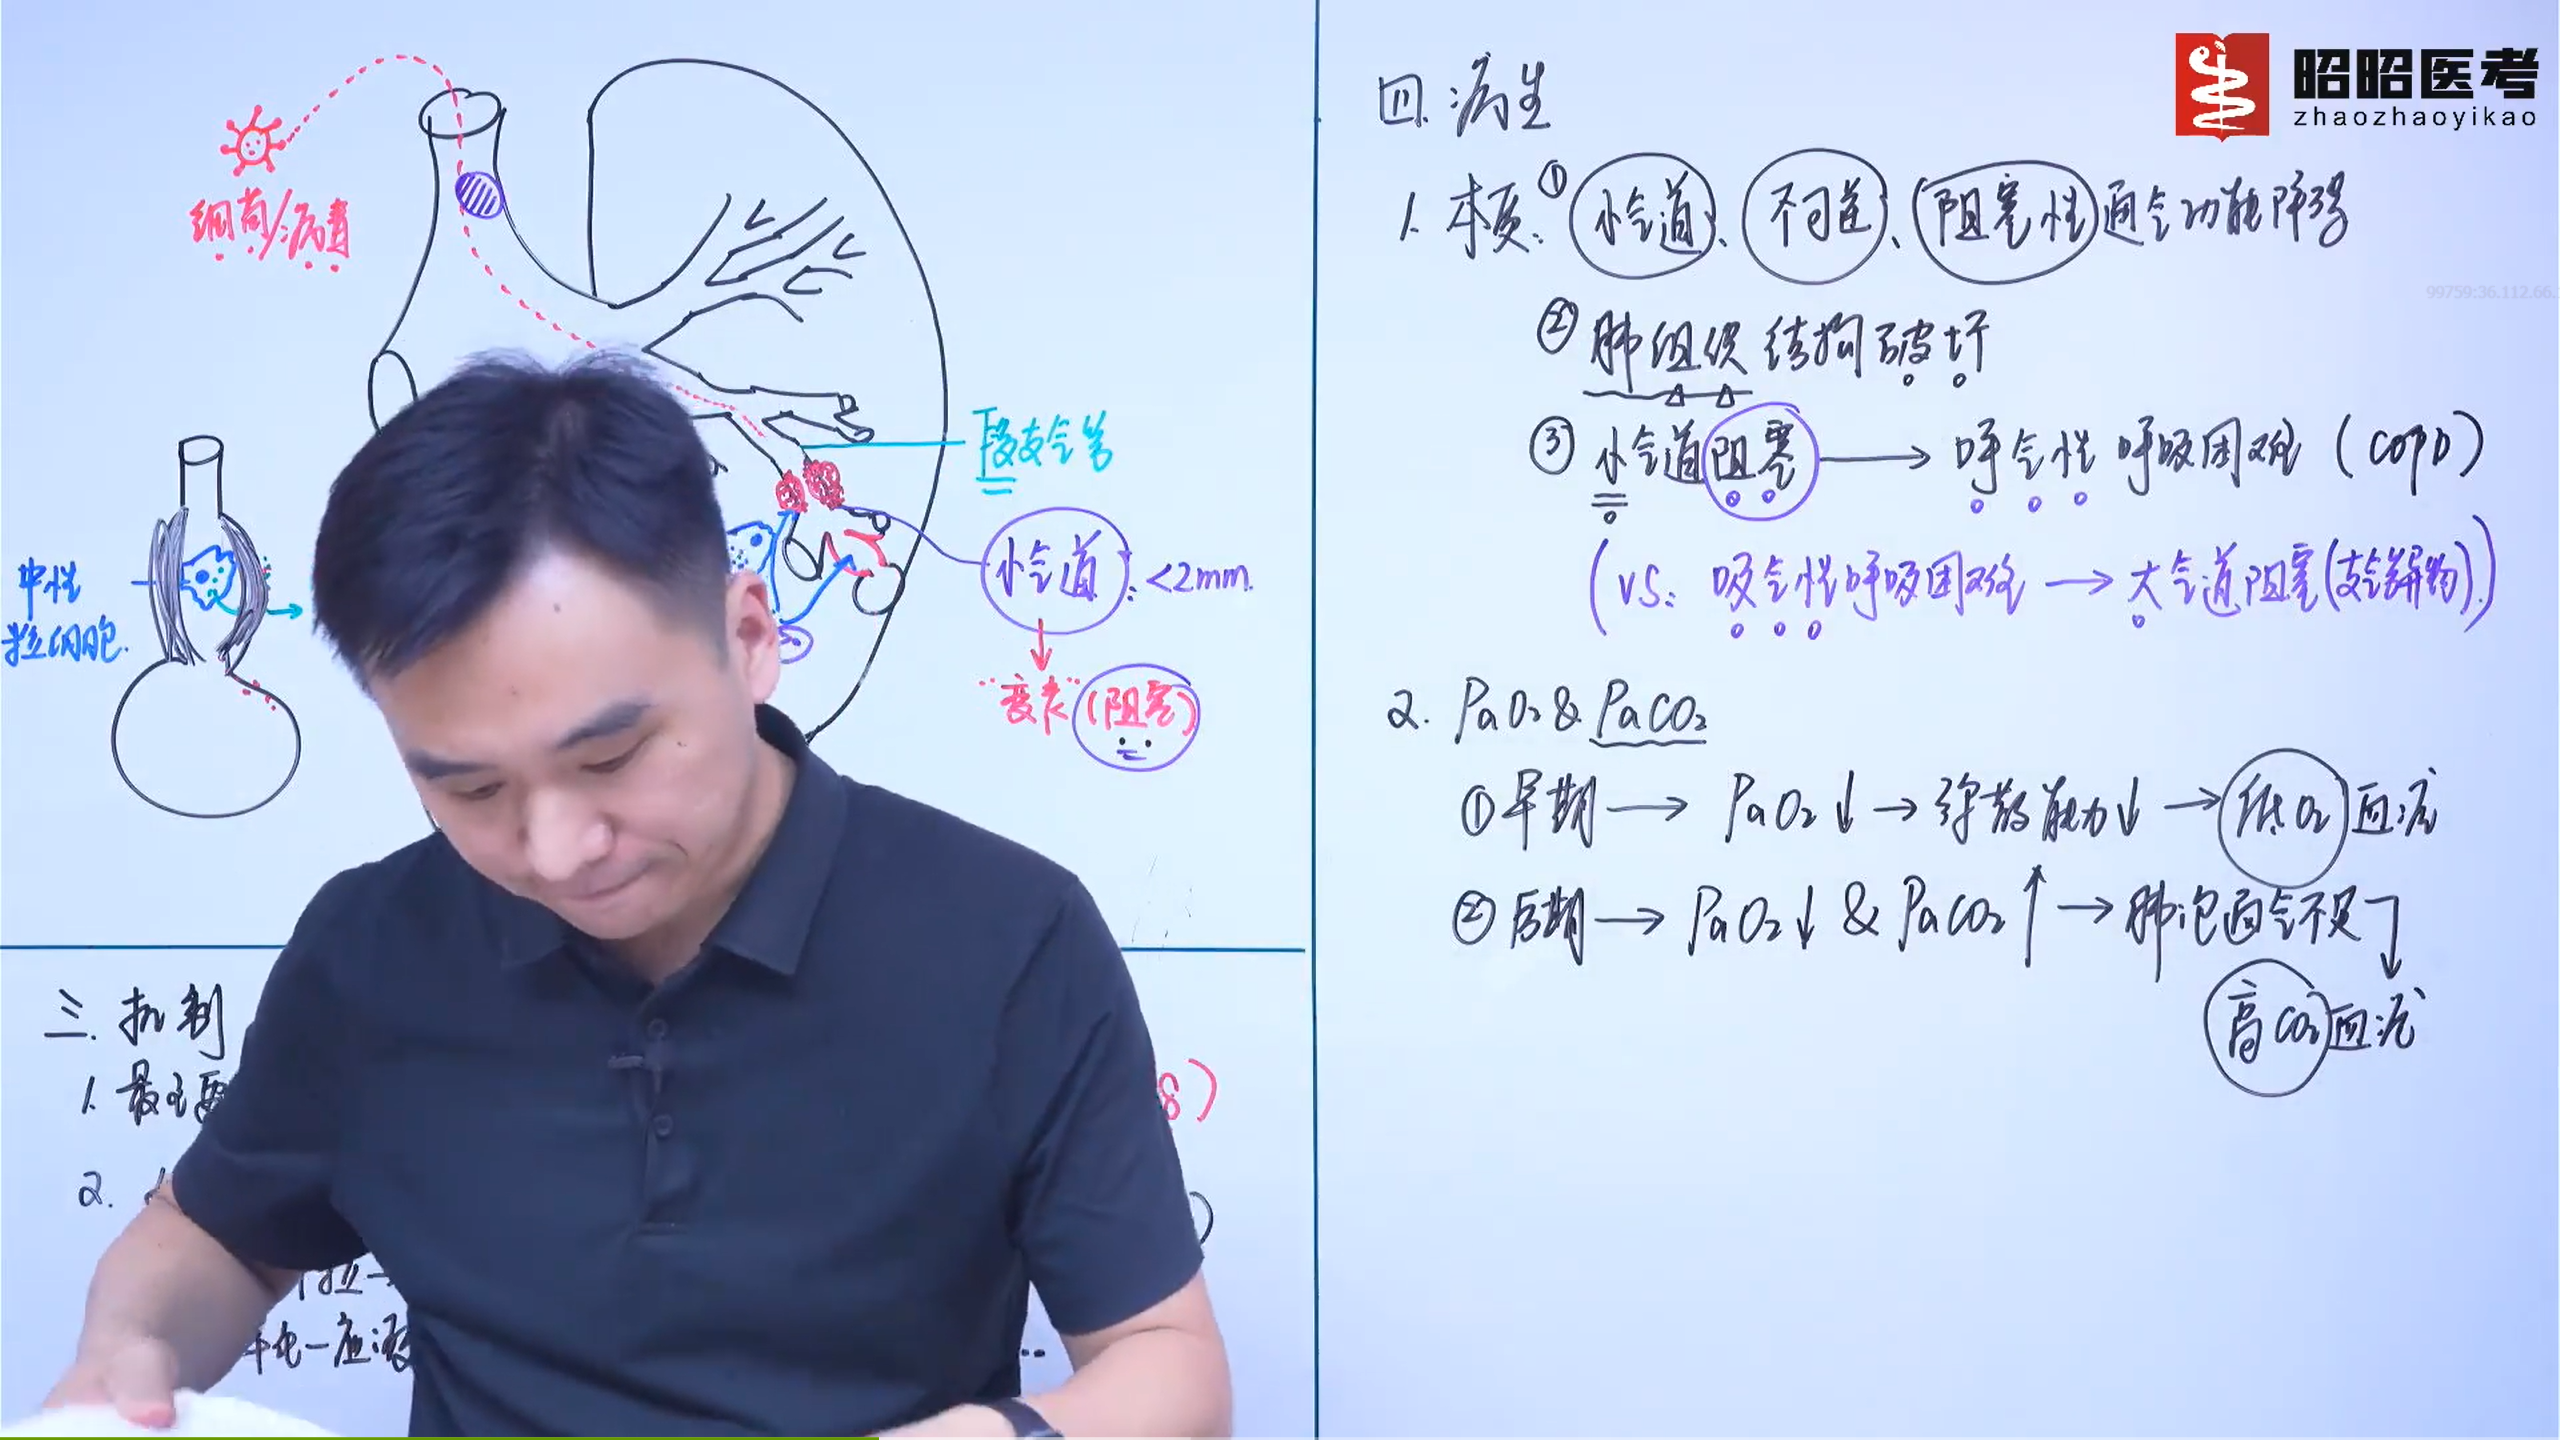 昭昭医考
zhaozhaoyikao
99759:36.112.66.
细菌/病毒
中性
粒细胞.
段支气管
小气道:<2mm.
"衰老"(阻塞)
三.机制
1.最主要
2.
四.病生
1.本质:①小气道、不可逆、阻塞性通气功能障碍
②肺组织结构破坏
③小气道阻塞→呼气性呼吸困难(COPD)
(VS:吸气性呼吸困难→大气道阻塞(支气管异物).)
2.PaO₂&PaCO₂
①早期→PaO₂↓→弥散能力↓→低O₂血症
②后期→PaO₂↓&PaCO₂↑→肺泡通气不足
高CO₂血症